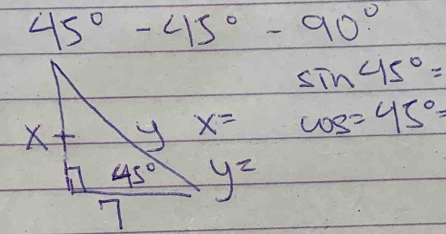 45° - 45° - 90°
sin 45° =
x y x= cos = 45° =
45° y=
7